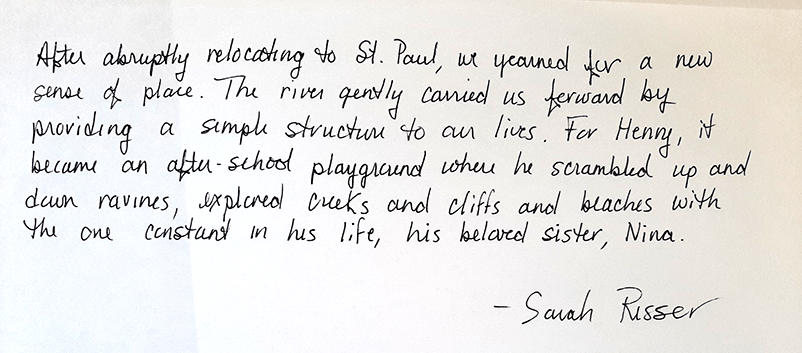 After abruptly relocating to St. Paul, we yearned for a new
sense of place. The river gently carried us forward by
providing a simple structure to our lives. For Henry, it
became an after-school playground where he scrambled up and
down ravines, explored creeks and cliffs and beaches with
the one constant in his life, his beloved sister, Nina.
- Sarah Risser